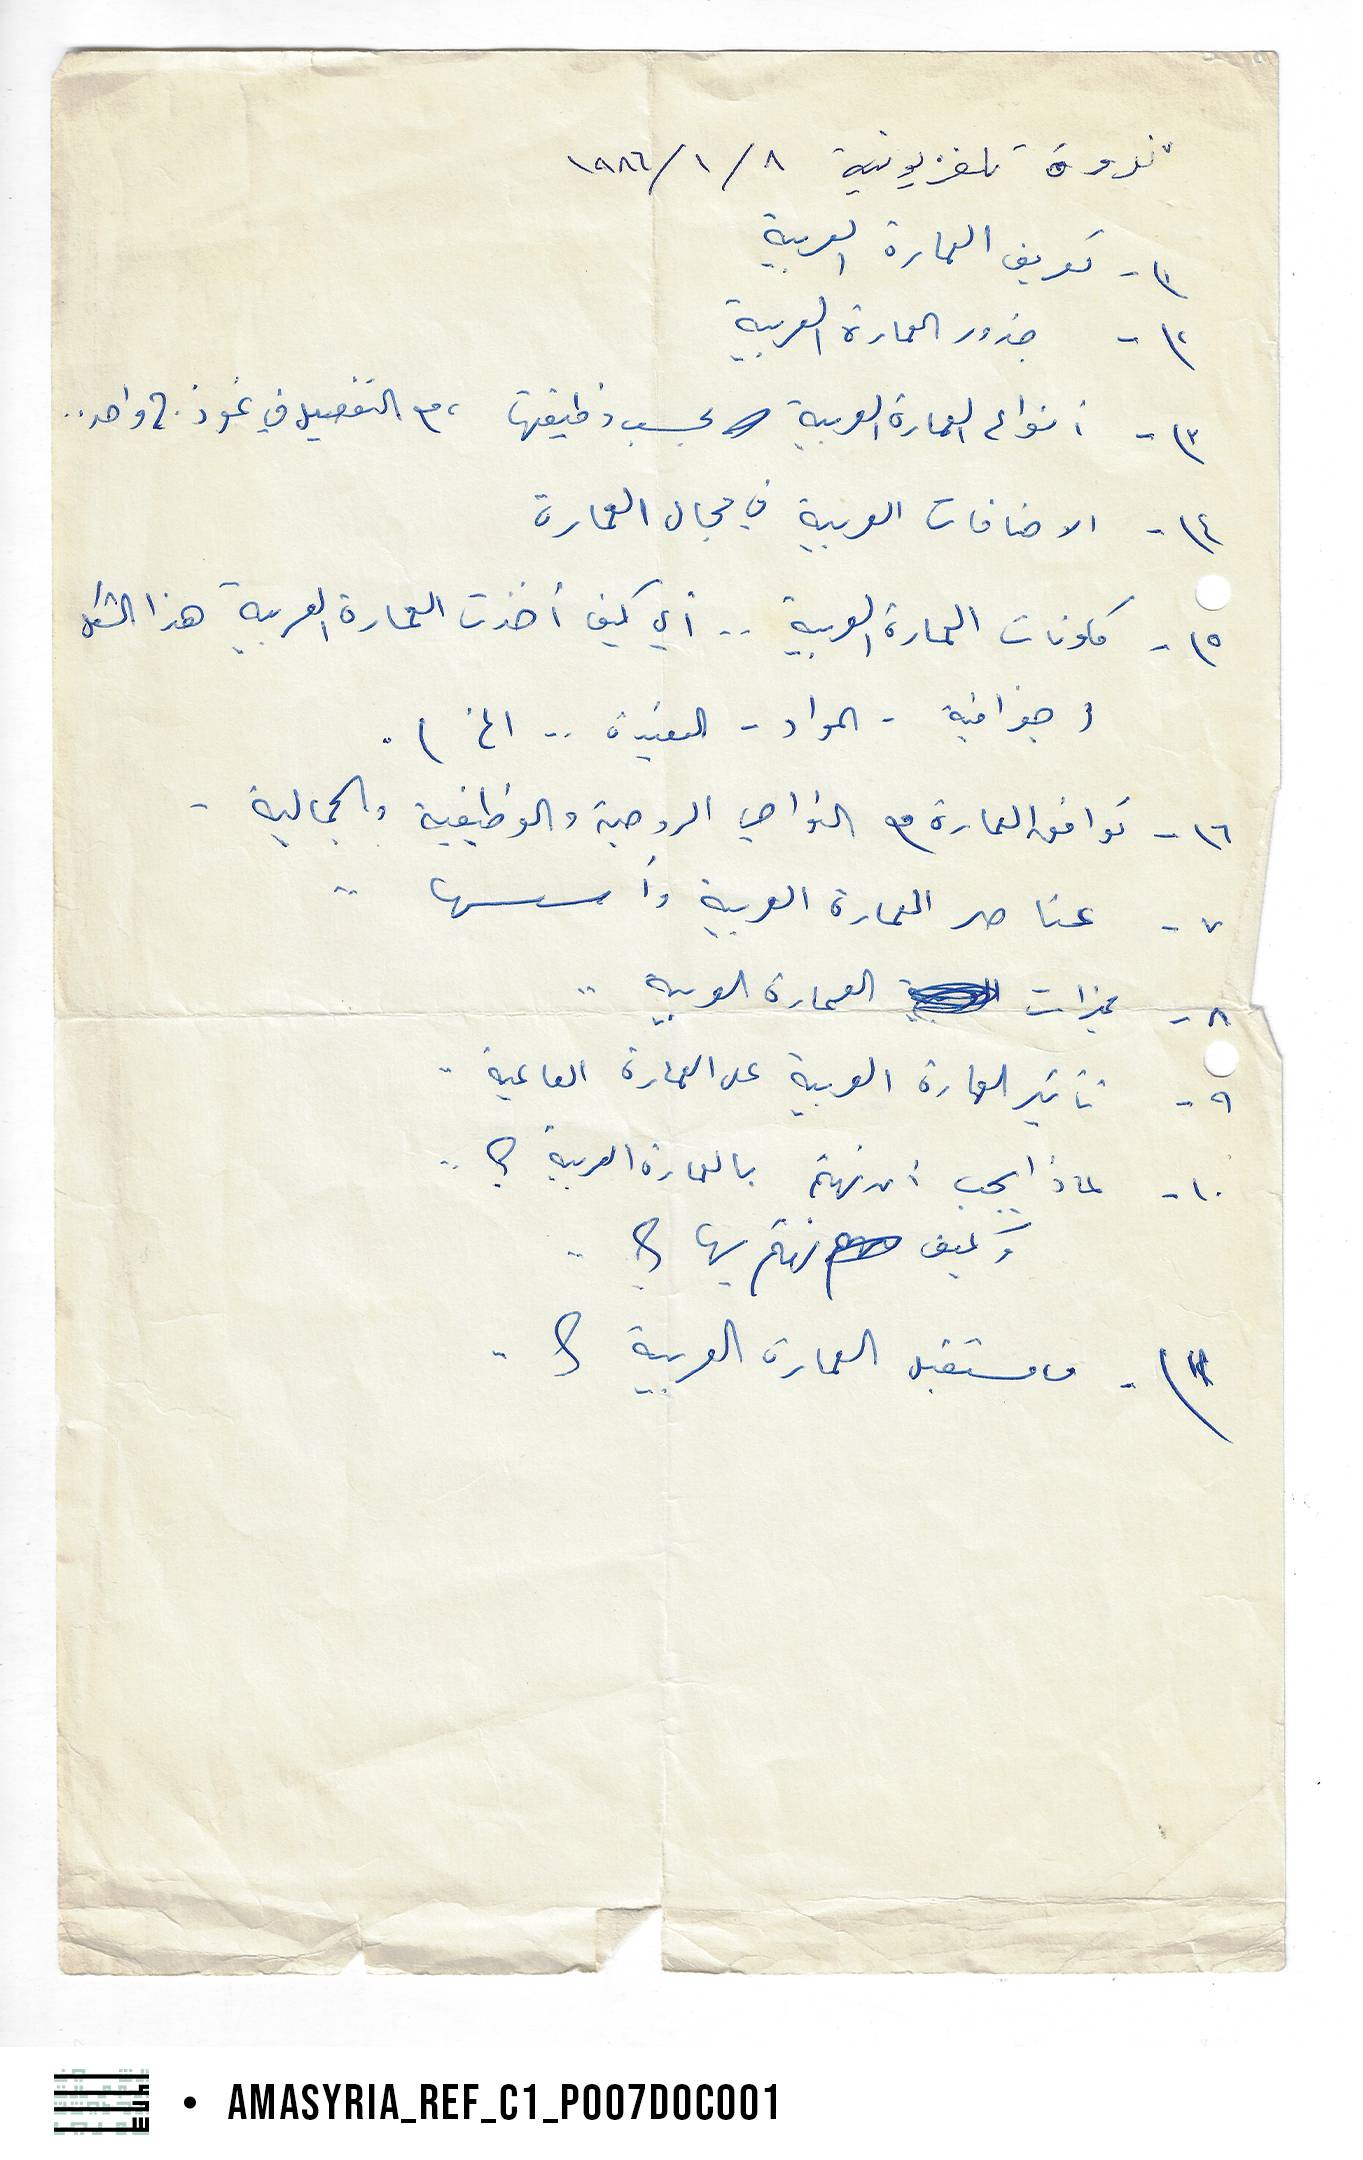 ندوة تلفزيونية ٨/١/١٩٨٦
١- تعريف العمارة العربية
٢- جذور العمارة العربية
٣- أنواع العمارة العربية بحسب وظيفتها ، مع التفصيل في نموذج واحد..
٤- الاضافات العربية في مجال العمارة
٥- مكونات العمارة العربية .. أي كيف أخذت العمارة العربية هذا الشكل
( جغرافية - المواد - العقيدة .. الخ ) .
٦- توافق العمارة مع النواحي الروحية والوظيفية والجمالية -
٧- عناصر العمارة العربية وأسسها ..
٨- مميزات العمارة العربية ..
٩- تأثير العمارة العربية على العمارة العالمية ..
١٠- لماذا يجب أن نهتم بالعمارة العربية ؟ ..
وكيف نهتم بها ؟ ..
١١- ما مستقبل العمارة العربية ؟ ..
AMASYRIA_REF_C1_P007DOC001